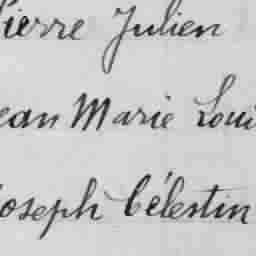 Pierre Julien
Jean Marie Loui
Joseph Célestin